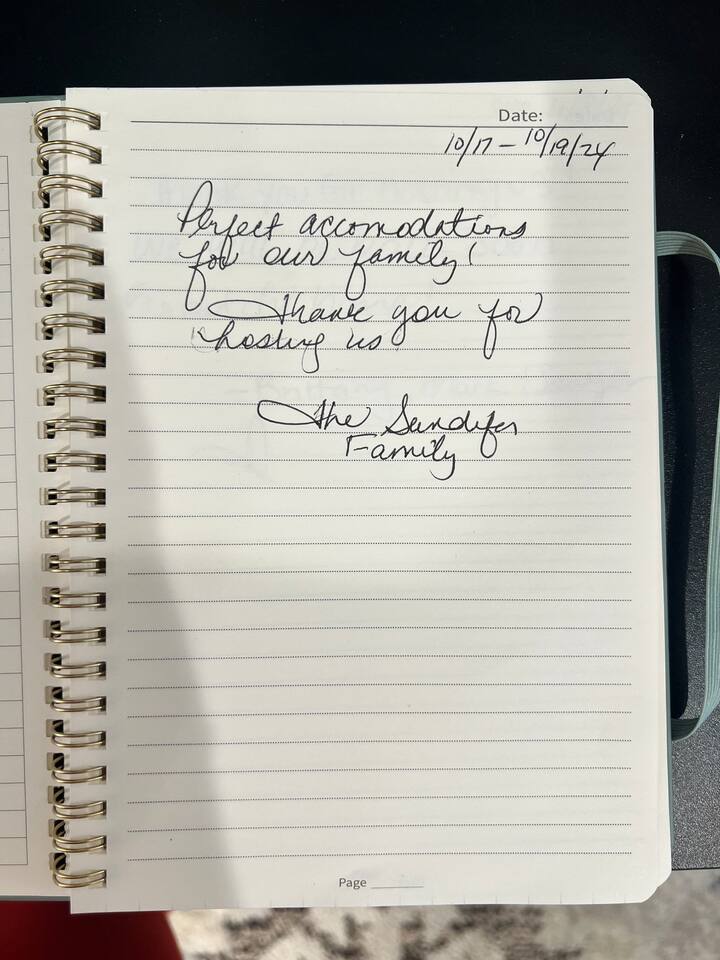 Date:
10/17 - 10/19/24
Perfect accomodations
for our family!
Thank you for
hosting us
The Sandifer
Family
Page